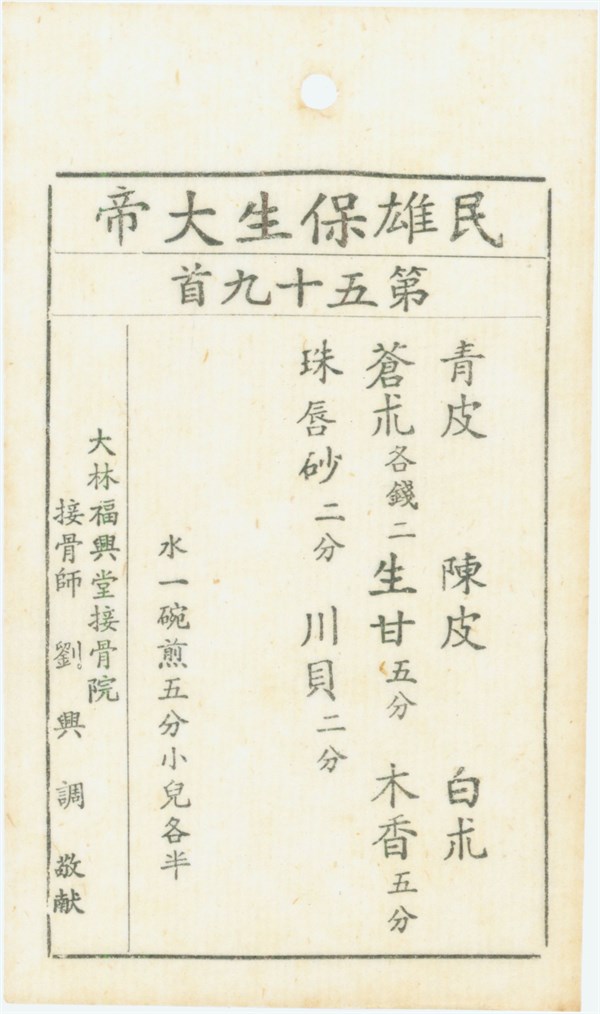 民雄保生大帝
第五十九首
青皮 陳皮 白朮
蒼朮各錢二 生甘五分 木香五分
珠唇砂二分 川貝二分
水一碗煎五分小兒各半
大林福興堂接骨院
接骨師 劉興調 敬献